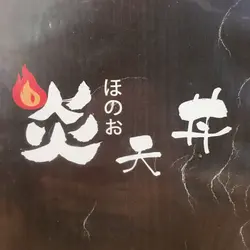 炎天丼
ほのお